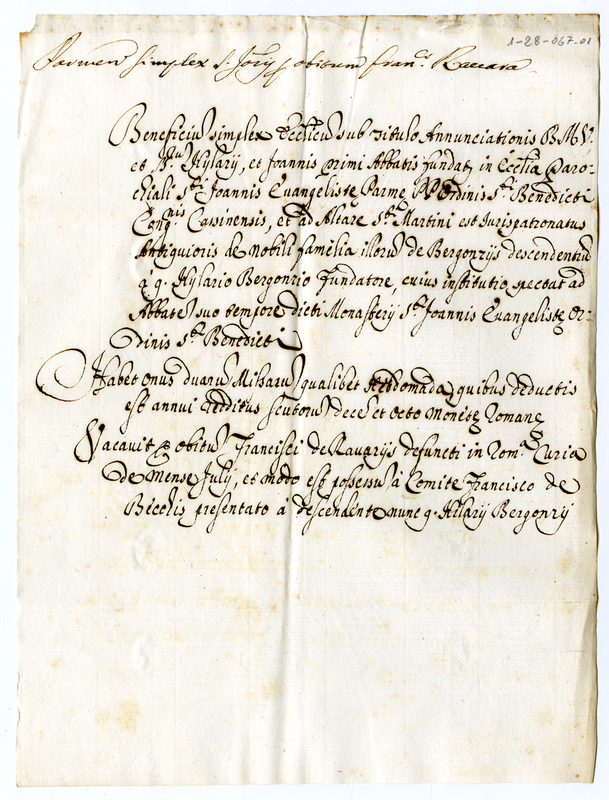 1-28-067-01
Parmen simplex s. Jorij p obitum Fran.ci Raccara
Beneficiu simplex Eccl̃icu sub titulo Annunciationis B.M.V.
et B.ti Hylarij, et Joannis primi Abbatis fundat, in Ecc̃lia Paro-
chiali S.ti Joannis Euangelistę Parmę Ordinis S.ti Benedicti
Cong.nis Cassinensis, et ad Altare S.ti Martini est Jurispatronatus
Antiquioris de nobili familia illoru de Bergonzijs descendentiu
à q. Hylario Bergonzio fundatore, cuius institutio spectat ad
Abbate suo tempore dicti Monasterij S.ti Joannis Euangelistę Or-
dinis S.ti Benedicti
Habet onus duaru Missaru qualibet Hebdomada, quibus deductis
est annui redditus scutoru dece et octo monetę Romanę
Vacauit p obitu Francisci de Rauarijs defuncti in Rom.a Curia
de Mense Julij, et modo est possessu à Comite Francisco de
presentato à descendente nunc q. Hilarij Bergonzij